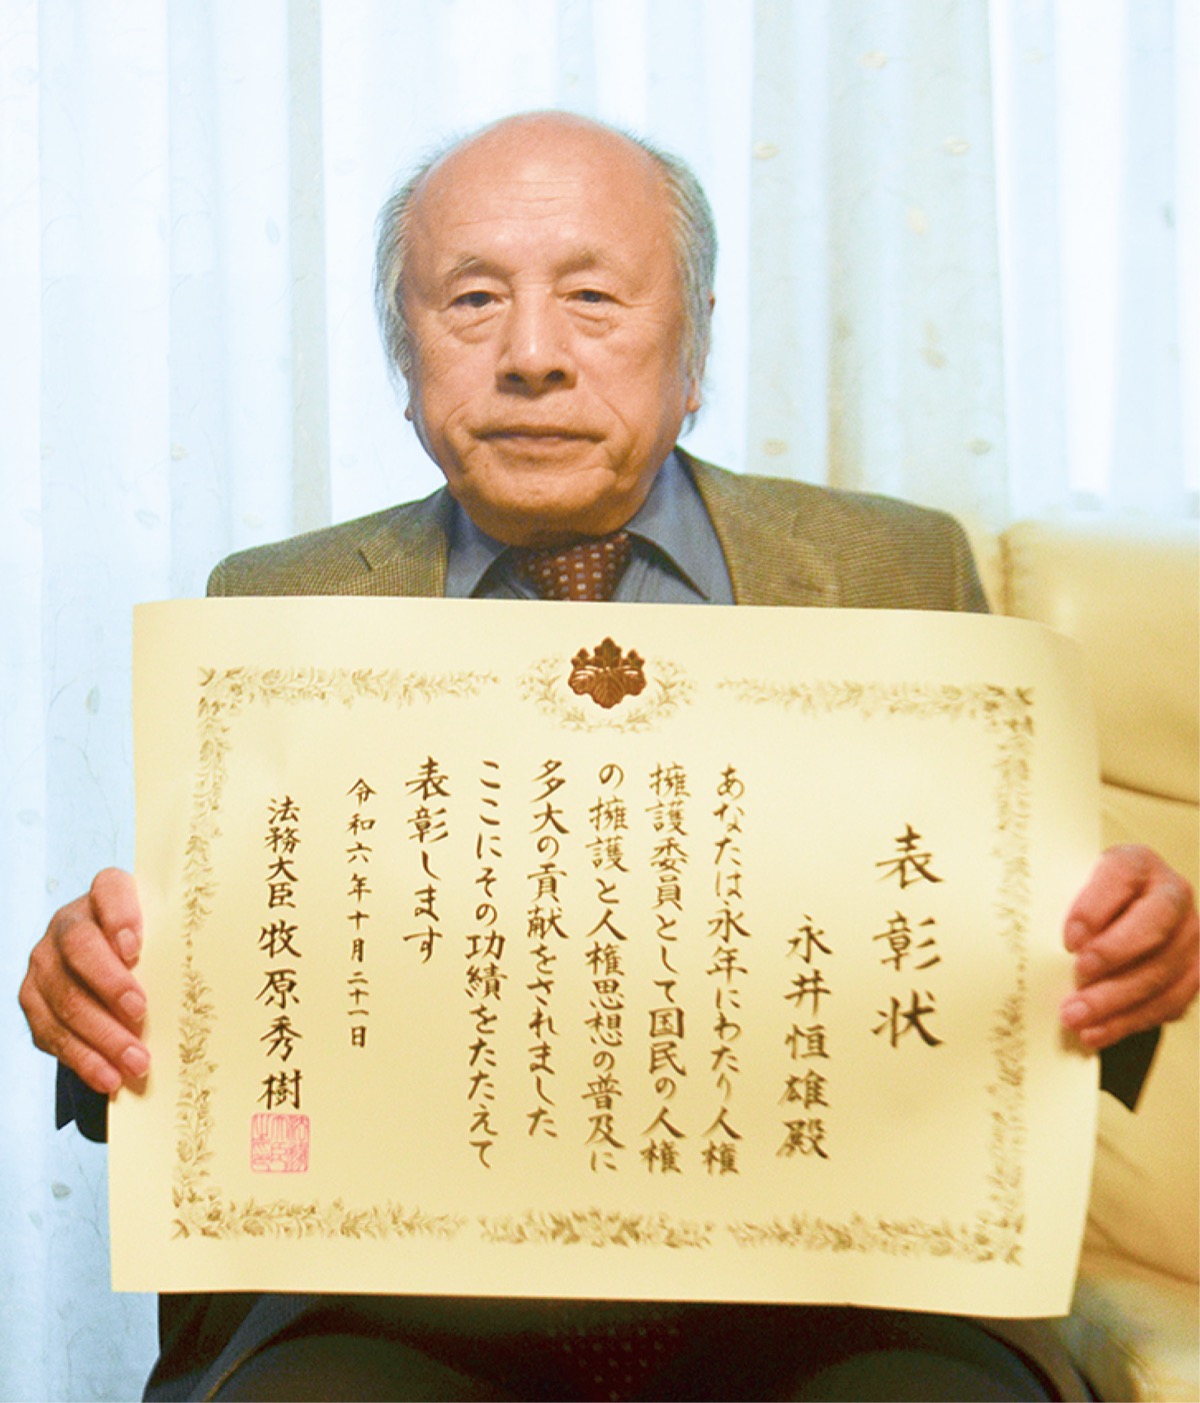 表彰状
永井恒雄殿
あなたは永年にわたり人権
擁護委員として国民の人権
の擁護と人権思想の普及に
多大の貢献をされました
ここにその功績をたたえて
表彰します
令和六年十月二十一日
法務大臣 牧原秀樹